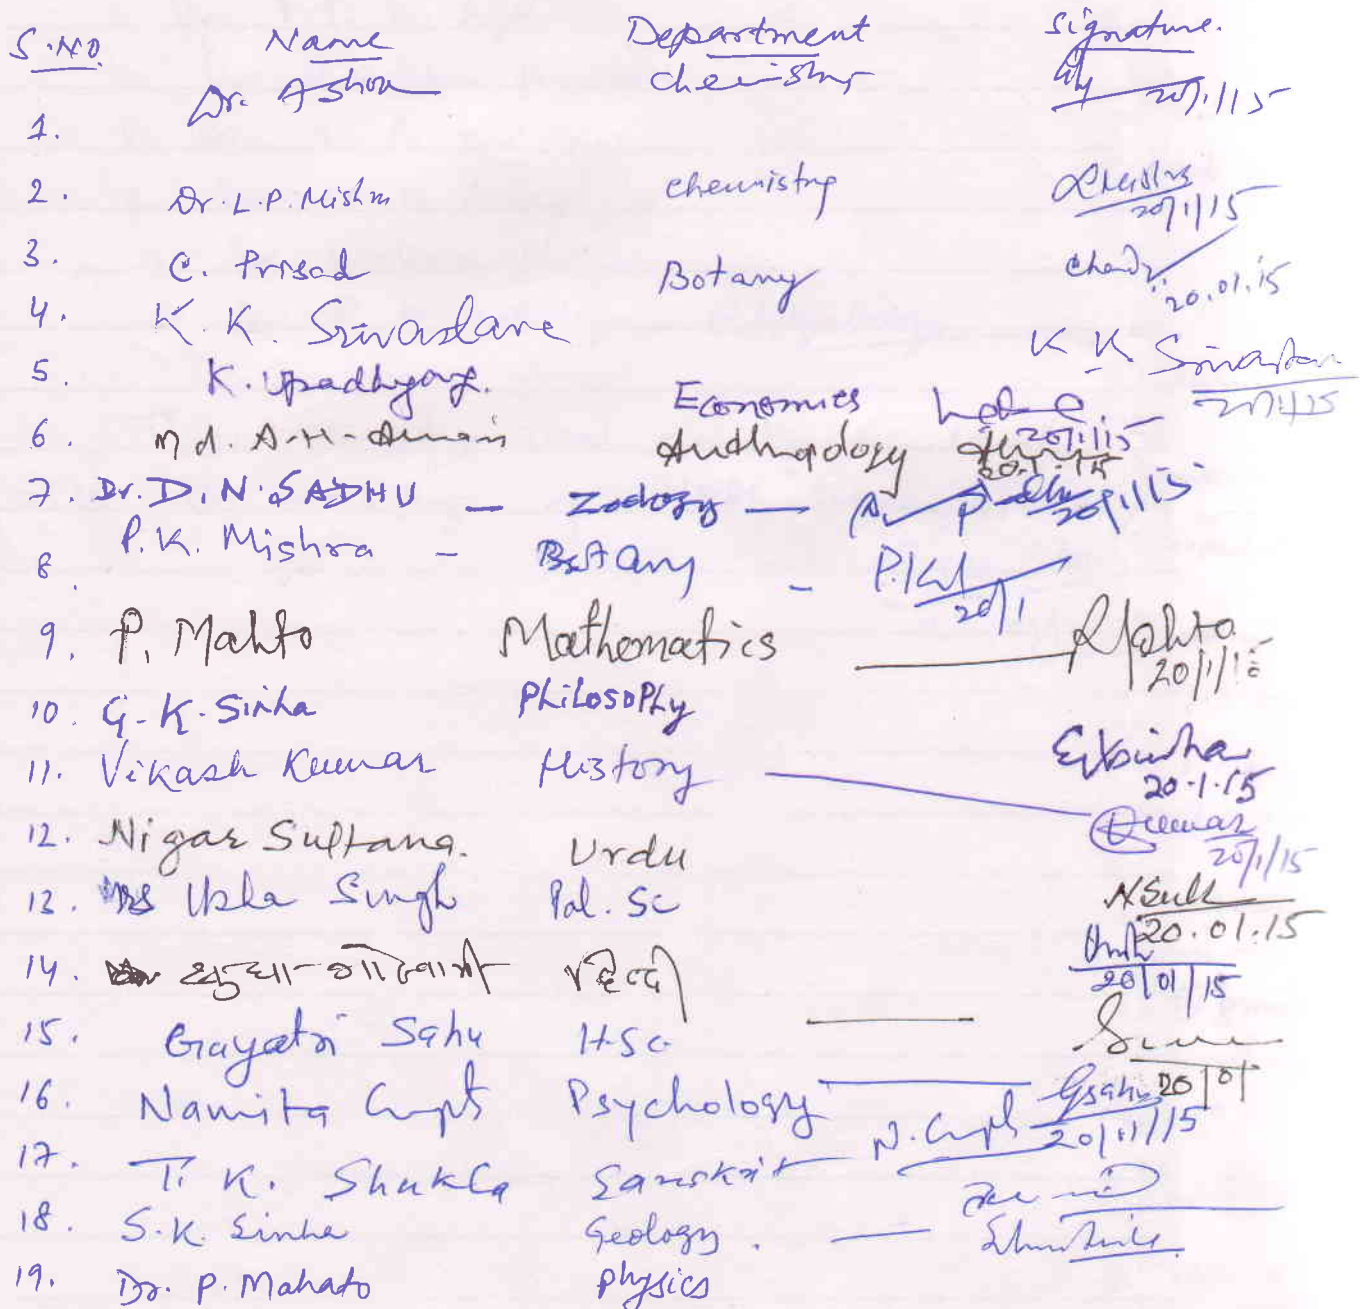 S.No. Name Department Signature.
Dr. Ashok chemistry 20/1/15
1.
2. Dr. L.P. Mishra chemistry 20/1/15
3. C. Prasad Botany 20.01.15
4. K. K. Srivastava K K Srivastava
5. K. Upadhyay. Economics 20/1/15
6. Md. A.H. Anthropology 20.1.15
7. Dr. D.N. SADHU — Zoology — 20/1/15
8. P.K. Mishra - Botany - 20/1
9. P. Mahto Mathematics PMahto 20/1/15
10. G. K. Sinha Philosophy GKSinha 20.1.15
11. Vikash Kumar History Kumar 20/1/15
12. Nigar Sultana. Urdu 20.01.15
13. Singh Pol. Sc 20/01/15
14. हिन्दी 20/01
15. Gayatri Sahu H.Sc GSahu 20/01/15
16. Namita Gupta Psychology N. Gupta
17. T. K. Shukla Sanskrit
18. S.K. Sinha Geology. —
19. Dr. P. Mahato Physics